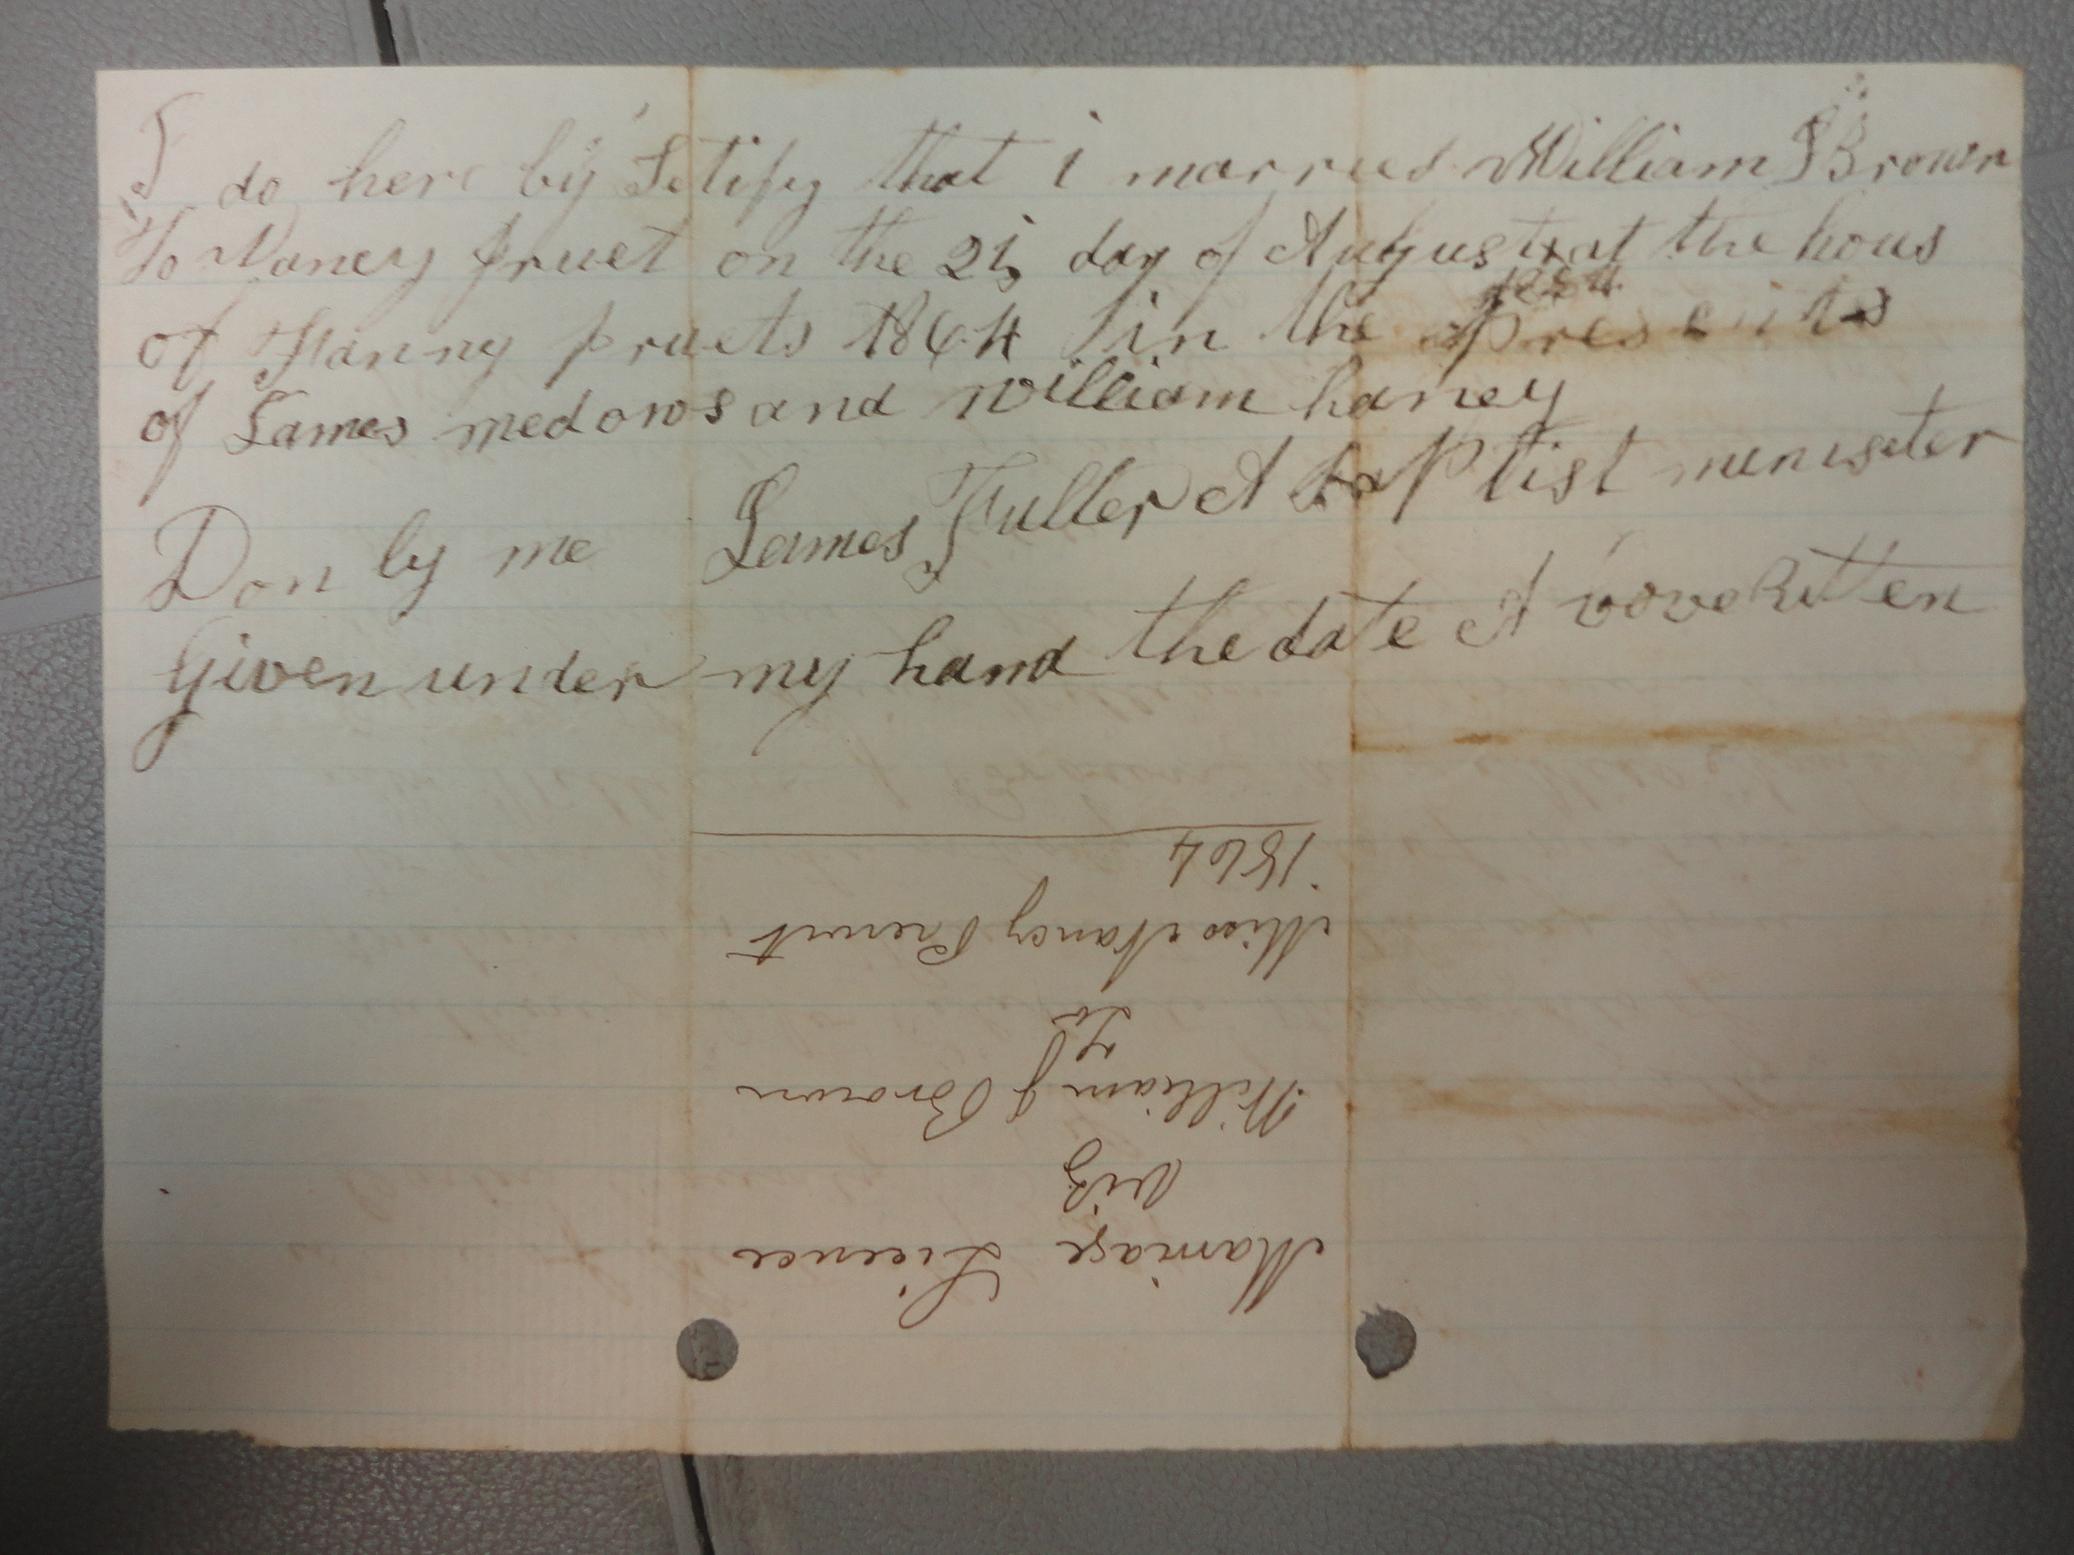 I do here by Setify that i married William J Brown
To Nancy pruet on the 21 day of August at the hous
1864
of Fanny pruets 1864 in the presents
of James medows and william haney
Don by me James Fuller A baptist menister
Given under my hand the date A bove Ritten
Marriage Licence
Viz
William J Brown
To
Miss Nancy Pruwit
1864